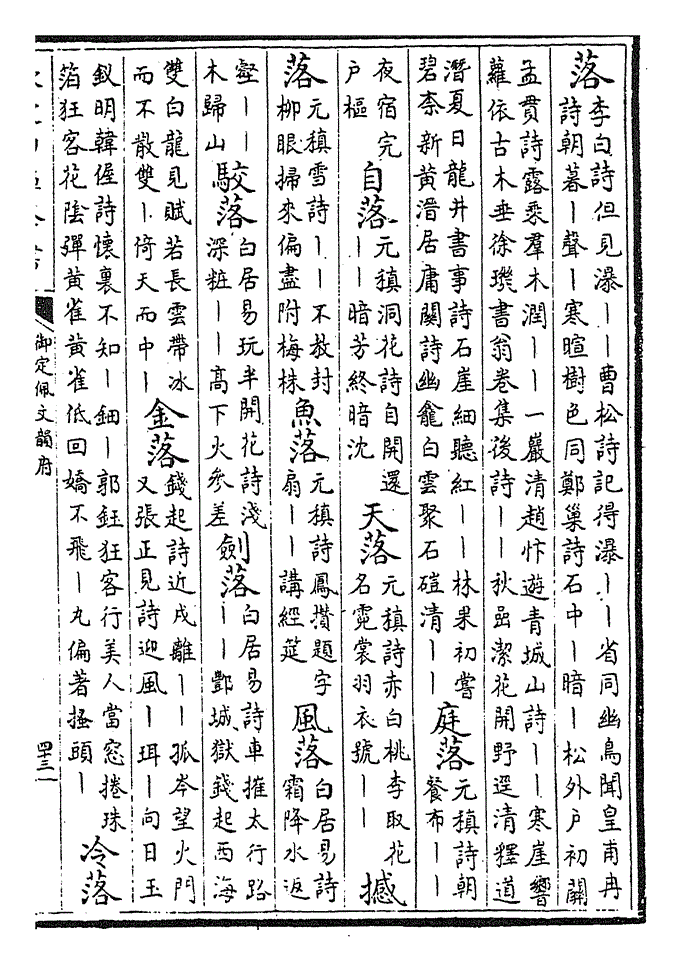 落 李白詩但見瀑丨丨曹松詩記得瀑丨丨省同幽鳥聞皇甫冉
詩朝暮丨聲丨寒暄樹色同鄭巢詩石中丨暗丨松外戶初關
孟貫詩露乘羣木潤丨丨一巖清趙忭遊青城山詩丨丨寒崖響
蘿依古木垂徐璣書翁卷集後詩丨丨秋品潔花開野逕清釋道
潛夏日龍井書事詩石崖細聽紅丨丨林果初嘗
碧柰新黄溍居庸關詩幽龕白雲聚石磴清丨丨
庭落 元稹詩朝
餐布丨丨
夜宿完
戶樞
自落 元稹洞花詩自開還
丨丨暗芳終暗沈
天落 元稹詩赤白桃李取花
名霓裳羽衣號丨丨
撼
落 元稹雪詩丨丨不教封
柳眼掃來偏盡附梅株
魚落 元稹詩鳳攢題字
扇丨丨講經筵
風落 白居易詩
霜降水返
壑丨丨
木歸山
駮落 白居易玩半開花詩淺
深粧丨丨高下火參差
劍落 白居易詩車摧太行路
丨丨酆城獄錢起西海
雙白龍見賦若長雲帶冰
而不散雙丨倚天而中丨
金落 錢起詩近戍離丨丨孤岑望火門
又張正見詩迎風丨珥丨向日玉
釵明韓偓詩懷裏不知丨鈿丨郭鈺狂客行美人當窓捲珠
箔狂客花陰彈黄雀黄雀低回嬌不飛丨丸偏著搔頭丨
冷落
御定佩文韻府
四十三